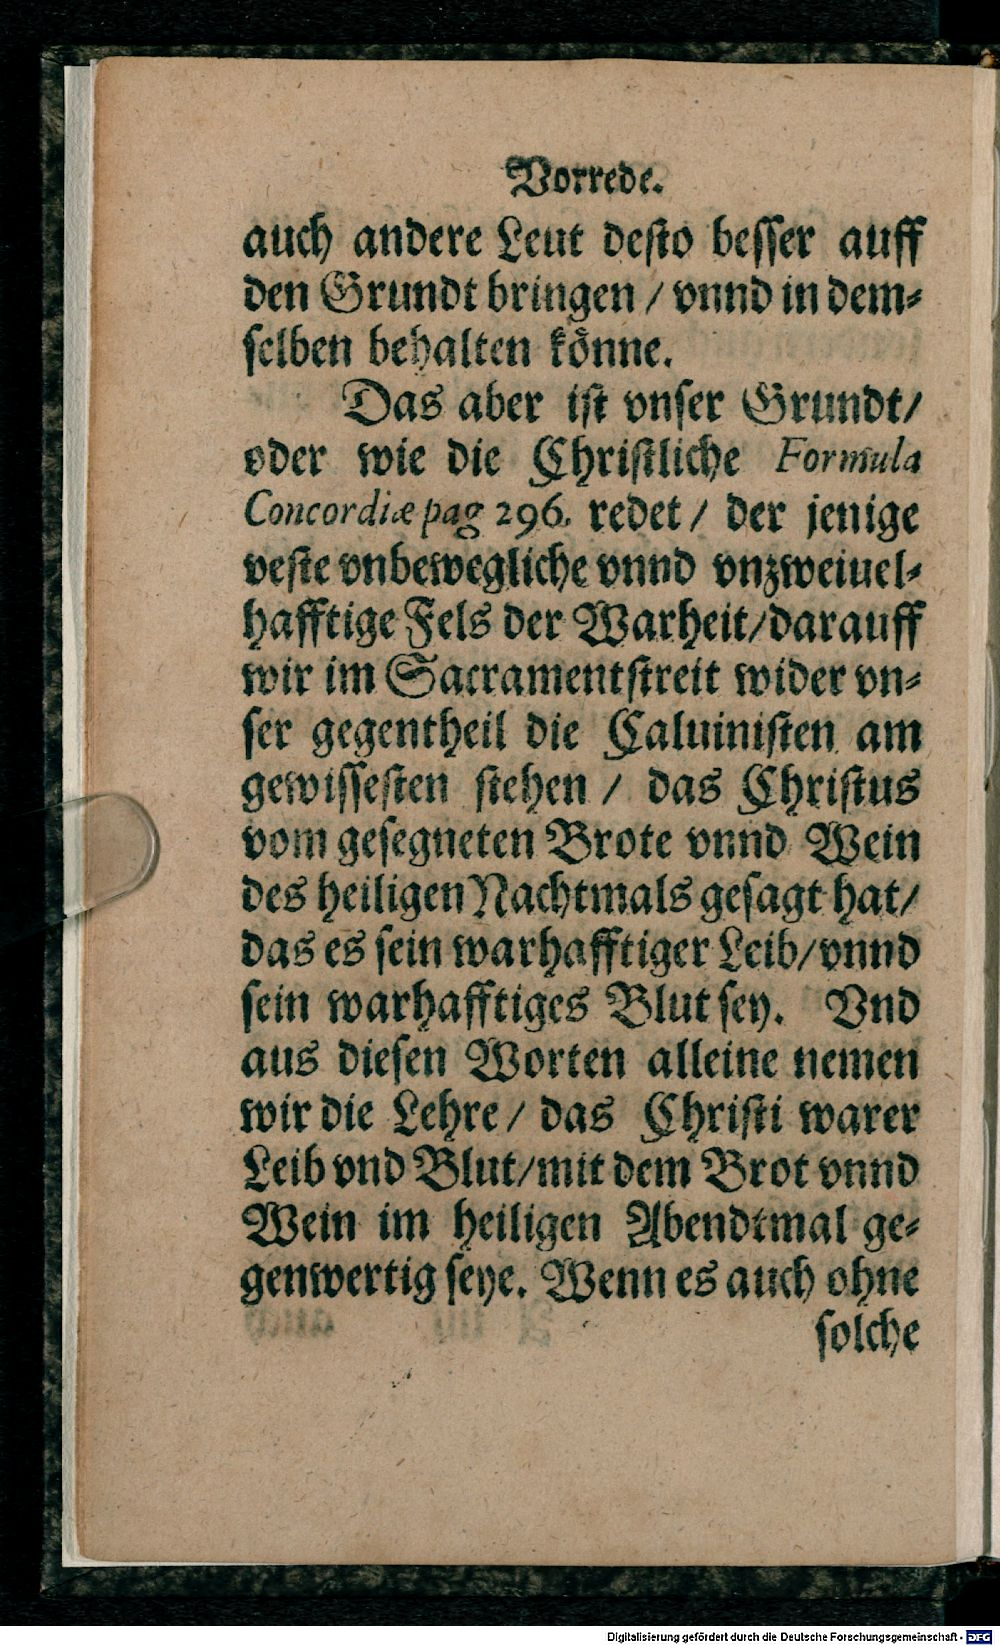 Vorrede.
auch andere Leut desto besser auff
den Grundt bringen / vnnd in dem⸗
selben behalten koͤnne.
Das aber ist vnser Grundt/
oder wie die Christliche Formula
Concordiæ pag 296. redet / der jenige
veste vnbewegliche vnnd vnzweiuel⸗
hafftige Fels der Warheit/darauff
wir im Sacramentstreit wider vn⸗
ser gegentheil die Caluinisten am
gewissesten stehen / das Christus
vom gesegneten Brote vnnd Wein
des heiligen Nachtmals gesagt hat/
das es sein warhafftiger Leib/vnnd
sein warhafftiges Blut sey. Vnd
aus diesen Worten alleine nemen
wir die Lehre / das Christi warer
Leib vnd Blut/mit dem Brot vnnd
Wein im heiligen Abendtmal ge⸗
genwertig seye. Wenn es auch ohne
solche
Digitalisierung gefördert durch die Deutsche Forschungsgemeinschaft - DFG